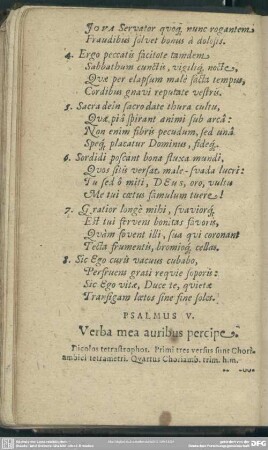 JOVA Servator quoq, nunc rogantem
Fraudibus solvet bonus à dolosis.
4. Ergo peccatū facitote tandem
Sabbathum cunctis, vigiliq, nocte,
Quæ per elapsum male facta tempus,
Cordibus gnavi reputate vestris.
5. Sacra dein sacro date thura cultu,
Quæ pii spirant animi sub arcâ:
Non enim fibris pecudum, sed unâ
Speq, placatur Dominus, fideq.
6. Sordidi poscant bona fluxa mundi,
Quos sitis versat male-suada lucri:
Tu sed ô miti, DEus, oro, vultu
Me tui cœtus famulum tuere!
7. Gratior longè mihi, svaviorq,
Est tui fervens bonitas favoris,
Quàm fovent illi, sua qui coronant
Tecta frumentis, bromioq, cellas.
8. Sic Ego curis vacuus cubabo,
Perfruens grati requie soporis:
Sic Ego vitæ, Duce te, quietæ
Transigam lætos sine fine soles.
PSALMUS V.
Verba mea auribus percipe.
Dicolos tetrastrophos. Primi tres versus sunt Chori-
ambici tetrametri. Quartus Choriamb. trim. h.m.